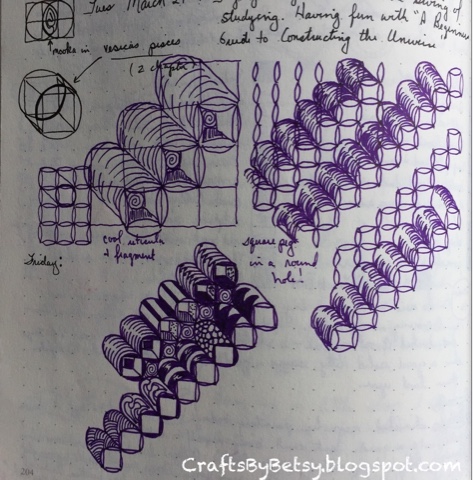 Tues March 21
of
studying. Having fun with "A Beginners
Guide to Constructing the Universe"
mooka in vesica pisces
(2 chapter)
cool reticula
& fragment
square peg
in a round
hole!
Friday:
204
CraftsByBetsy.blogspot.com